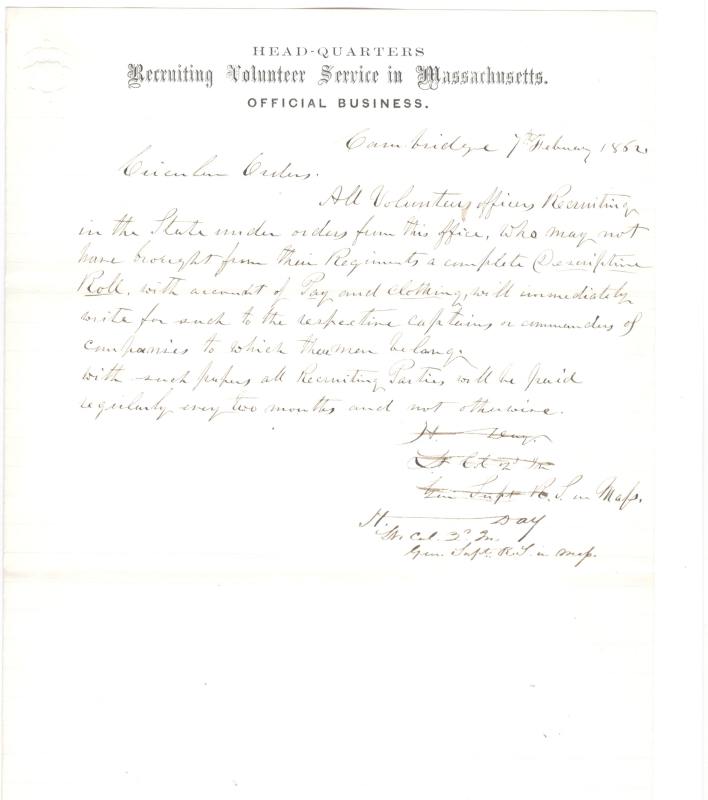 HEAD-QUARTERS
Recruiting Volunteer Service in Massachusetts.
OFFICIAL BUSINESS.
Cambridge 7th February 1862
Circular Orders.
All Volunteers officers Recruiting
in the State under orders from this office, who may not
have brought from their Regiments a complete Descriptive
Roll, with account of Pay and Clothing, will immediately
write for such to the respective captains or commanders of
companies to which their men belong.
With such papers all Recruiting Parties will be paid
regularly every two months and not otherwise.
H. Day
Lt Col 2d In
Gen Supt R. S. in Mass.
H. Day
Lt. Col. 2d In.
Gen. Supt. R. S. in Mass.